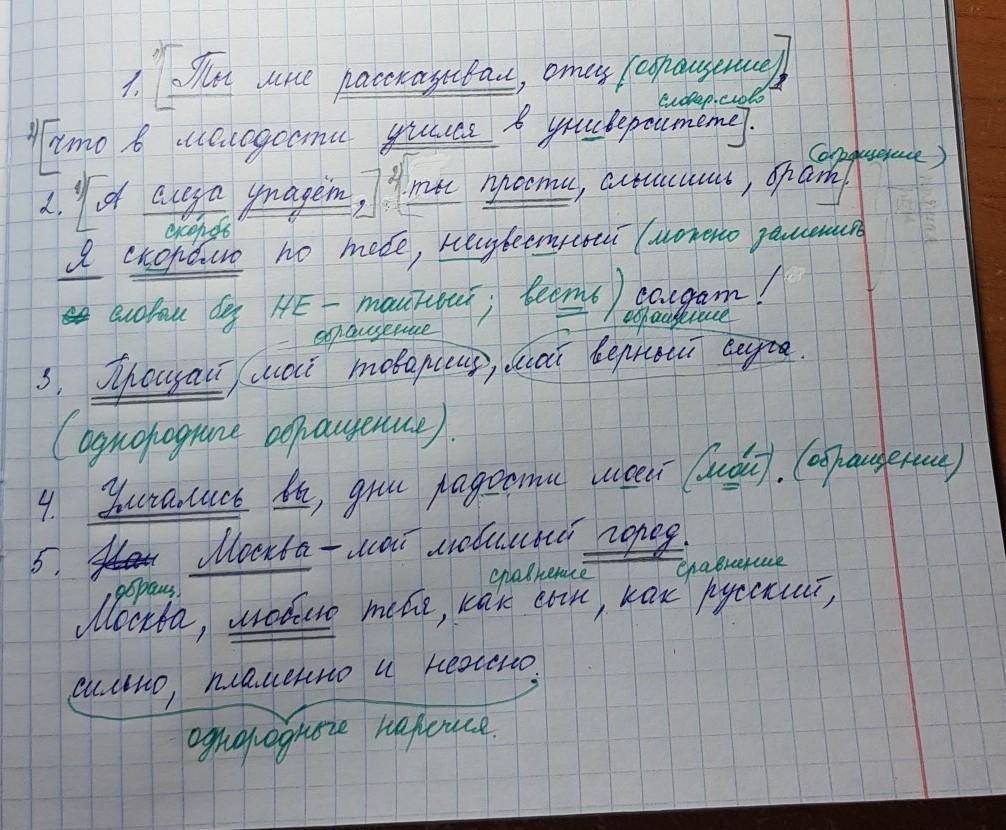 1. 1) [Ты мне рассказывал, отец (обращение)],
словар. слово
2) [что в молодости учился в университете].
(обращение)
2. 1) [А слеза упадёт,] 2) [ты прости, слышишь, брат].
скорбь
Я скорблю по тебе, неизвестный (можно заменить
со словом без НЕ – тайный; весть) солдат!
обращение обращение
3. Прощай, мой товарищ, мой верный слуга.
(однородные обращения).
4. Умчались вы, дни радости моей (мой). (обращение)
5. Москва – мой любимый город.
обращ. сравнение сравнение
Москва, люблю тебя, как сын, как русский,
сильно, пламенно и нежно.
однородные наречия.